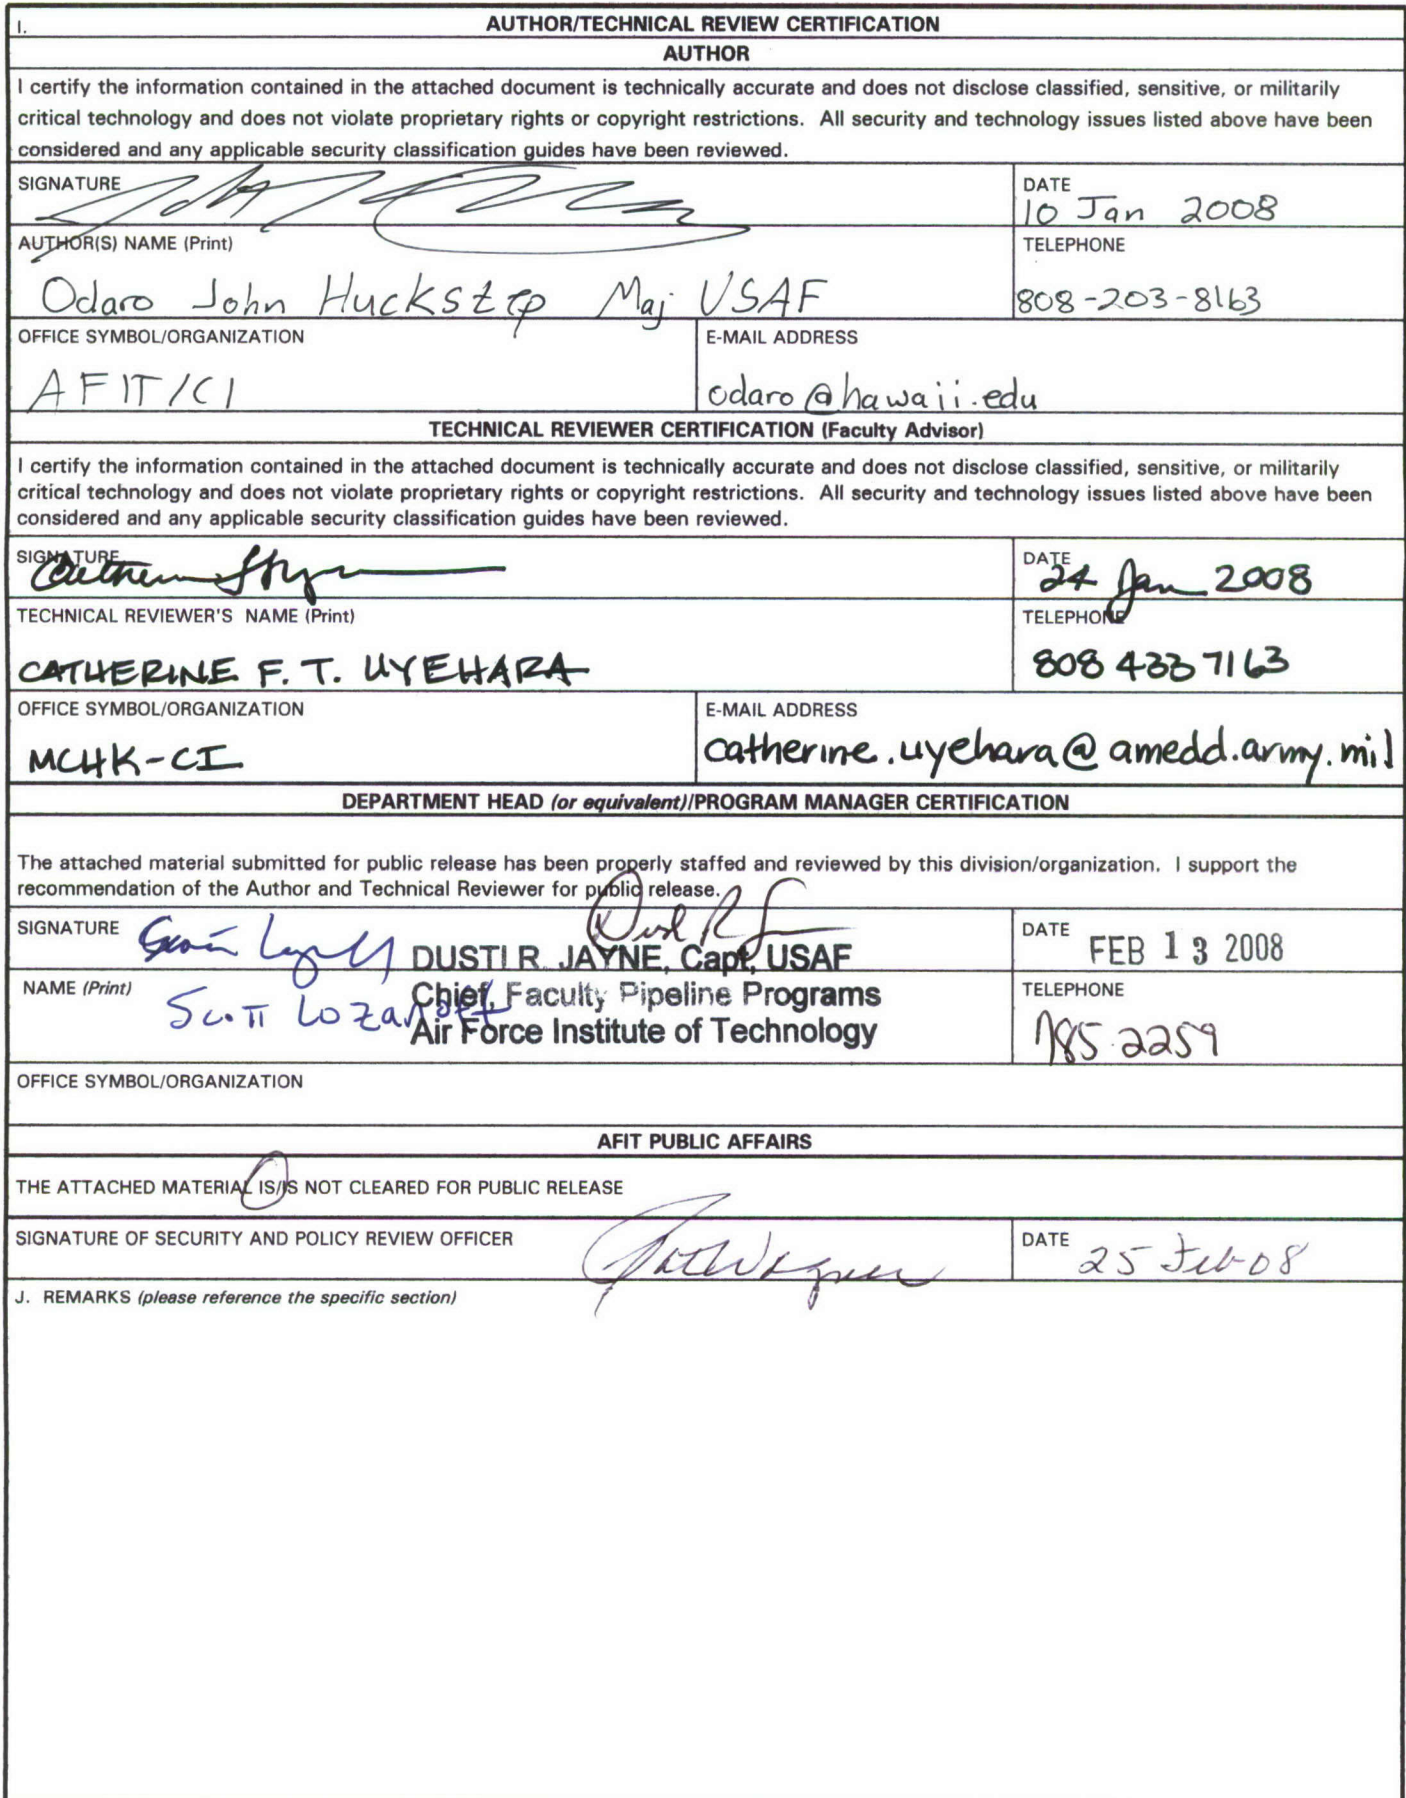 I. AUTHOR/TECHNICAL REVIEW CERTIFICATION
AUTHOR
I certify the information contained in the attached document is technically accurate and does not disclose classified, sensitive, or militarily
critical technology and does not violate proprietary rights or copyright restrictions. All security and technology issues listed above have been
considered and any applicable security classification guides have been reviewed.
SIGNATURE
DATE
10 Jan 2008
AUTHOR(S) NAME (Print)
TELEPHONE
Odaro John Huckstep Maj USAF
808-203-8163
OFFICE SYMBOL/ORGANIZATION
E-MAIL ADDRESS
AFIT/CI
odaro@hawaii.edu
TECHNICAL REVIEWER CERTIFICATION (Faculty Advisor)
I certify the information contained in the attached document is technically accurate and does not disclose classified, sensitive, or militarily
critical technology and does not violate proprietary rights or copyright restrictions. All security and technology issues listed above have been
considered and any applicable security classification guides have been reviewed.
SIGNATURE
DATE
24 Jan 2008
TECHNICAL REVIEWER'S NAME (Print)
TELEPHONE
CATHERINE F. T. UYEHARA
808 433 7163
OFFICE SYMBOL/ORGANIZATION
E-MAIL ADDRESS
MCHK-CI
catherine.uyehara@amedd.army.mil
DEPARTMENT HEAD (or equivalent)/PROGRAM MANAGER CERTIFICATION
The attached material submitted for public release has been properly staffed and reviewed by this division/organization. I support the
recommendation of the Author and Technical Reviewer for public release.
SIGNATURE
DATE
FEB 13 2008
DUSTI R. JAYNE, Capt, USAF
NAME (Print)
Scott Lozanoff
Chief, Faculty Pipeline Programs
Air Force Institute of Technology
TELEPHONE
785-2259
OFFICE SYMBOL/ORGANIZATION
AFIT PUBLIC AFFAIRS
THE ATTACHED MATERIAL IS/IS NOT CLEARED FOR PUBLIC RELEASE
SIGNATURE OF SECURITY AND POLICY REVIEW OFFICER
DATE
25 Feb 08
J. REMARKS (please reference the specific section)